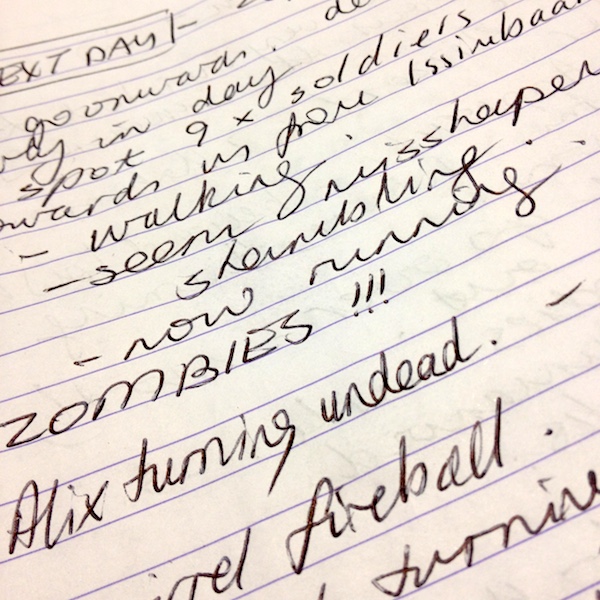 EXT DAY! -
go onwards. de
in day
spot 9 x soldiers
wards us from Issimbaar
- walking.
- seem misshapen
shambling..
- now running
ZOMBIES !!!
Alix turning undead. -
rrel fireball.
turnin